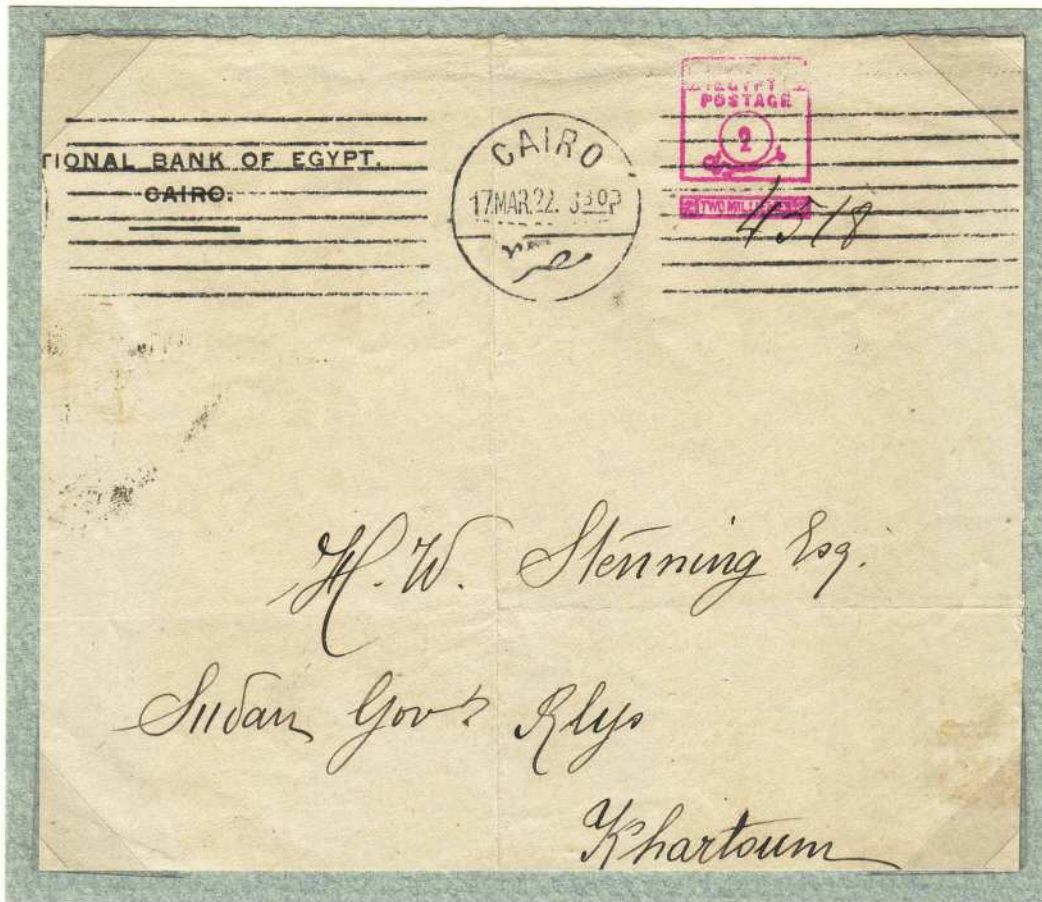 TIONAL BANK OF EGYPT.
CAIRO.
CAIRO
17.MAR.22. 330P
EGYPT
POSTAGE
2
TWO MILL
4518
H. W. Stenning Esq.
Sudan Govt Rlys
Khartoum